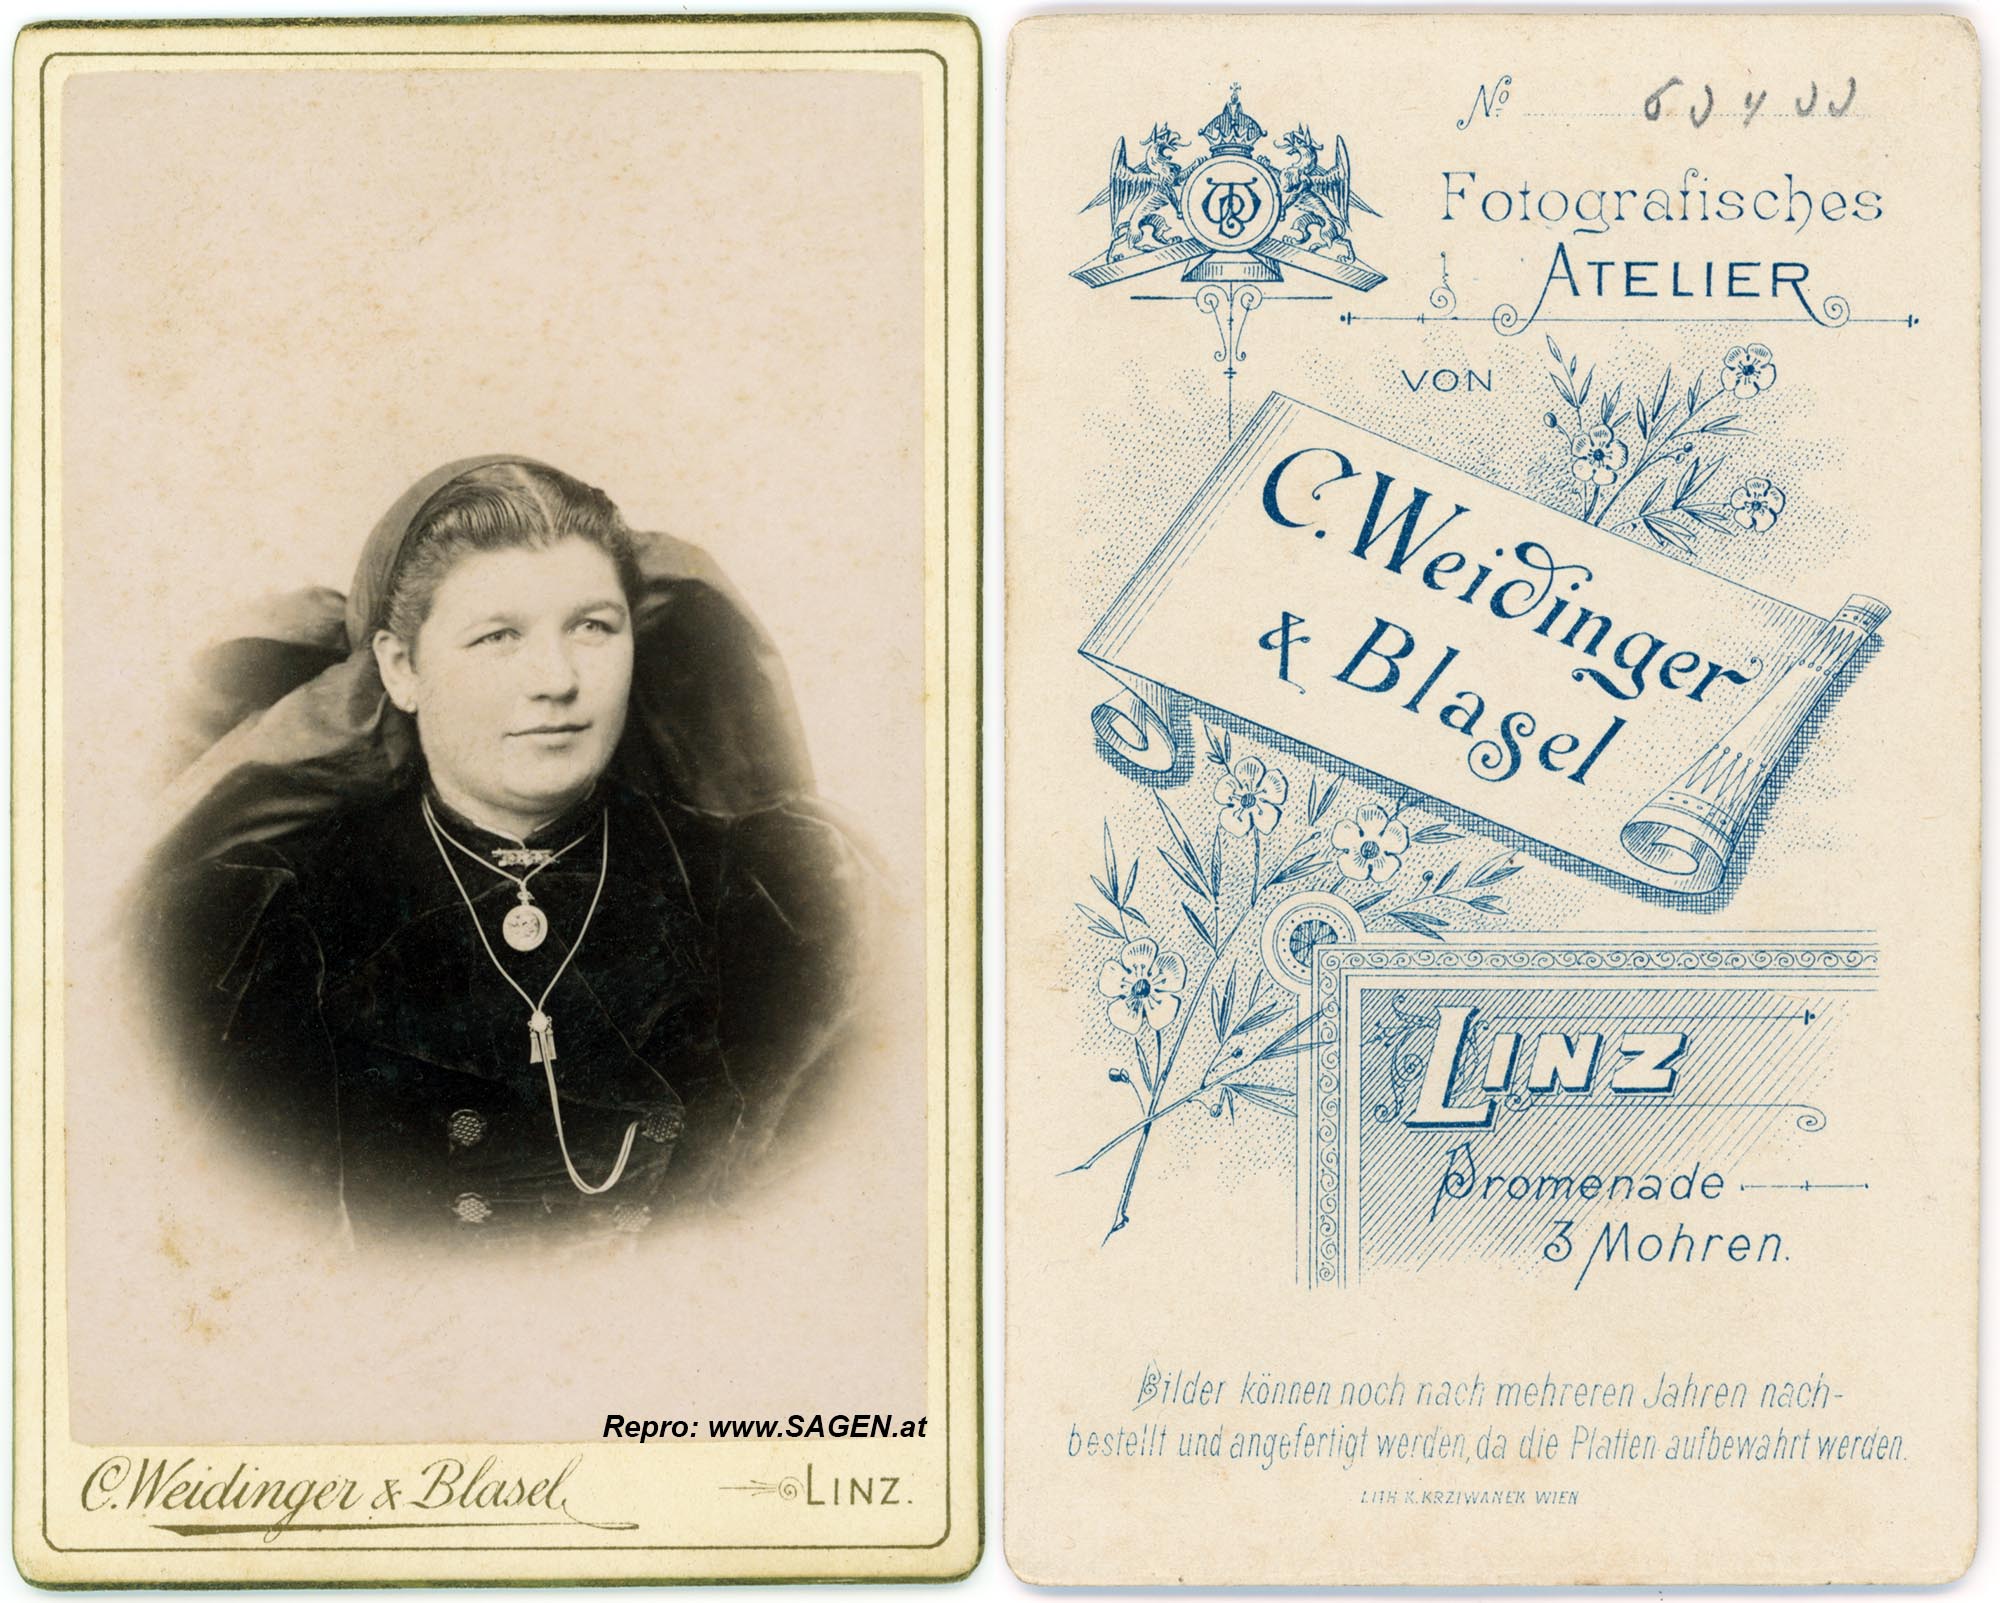 Repro: www.SAGEN.at
C. Weidinger & Blasel
LINZ.
No
Fotografisches
ATELIER
VON
C. Weidinger
& Blasel
LINZ
Promenade
3 Mohren.
Bilder können noch nach mehreren Jahren nach-
bestellt und angefertigt werden, da die Platten aufbewahrt werden.
LITH K. KRZIWANEK WIEN